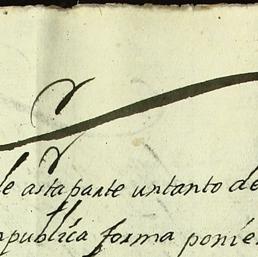 de asta parte untanto de
publica forma ponie